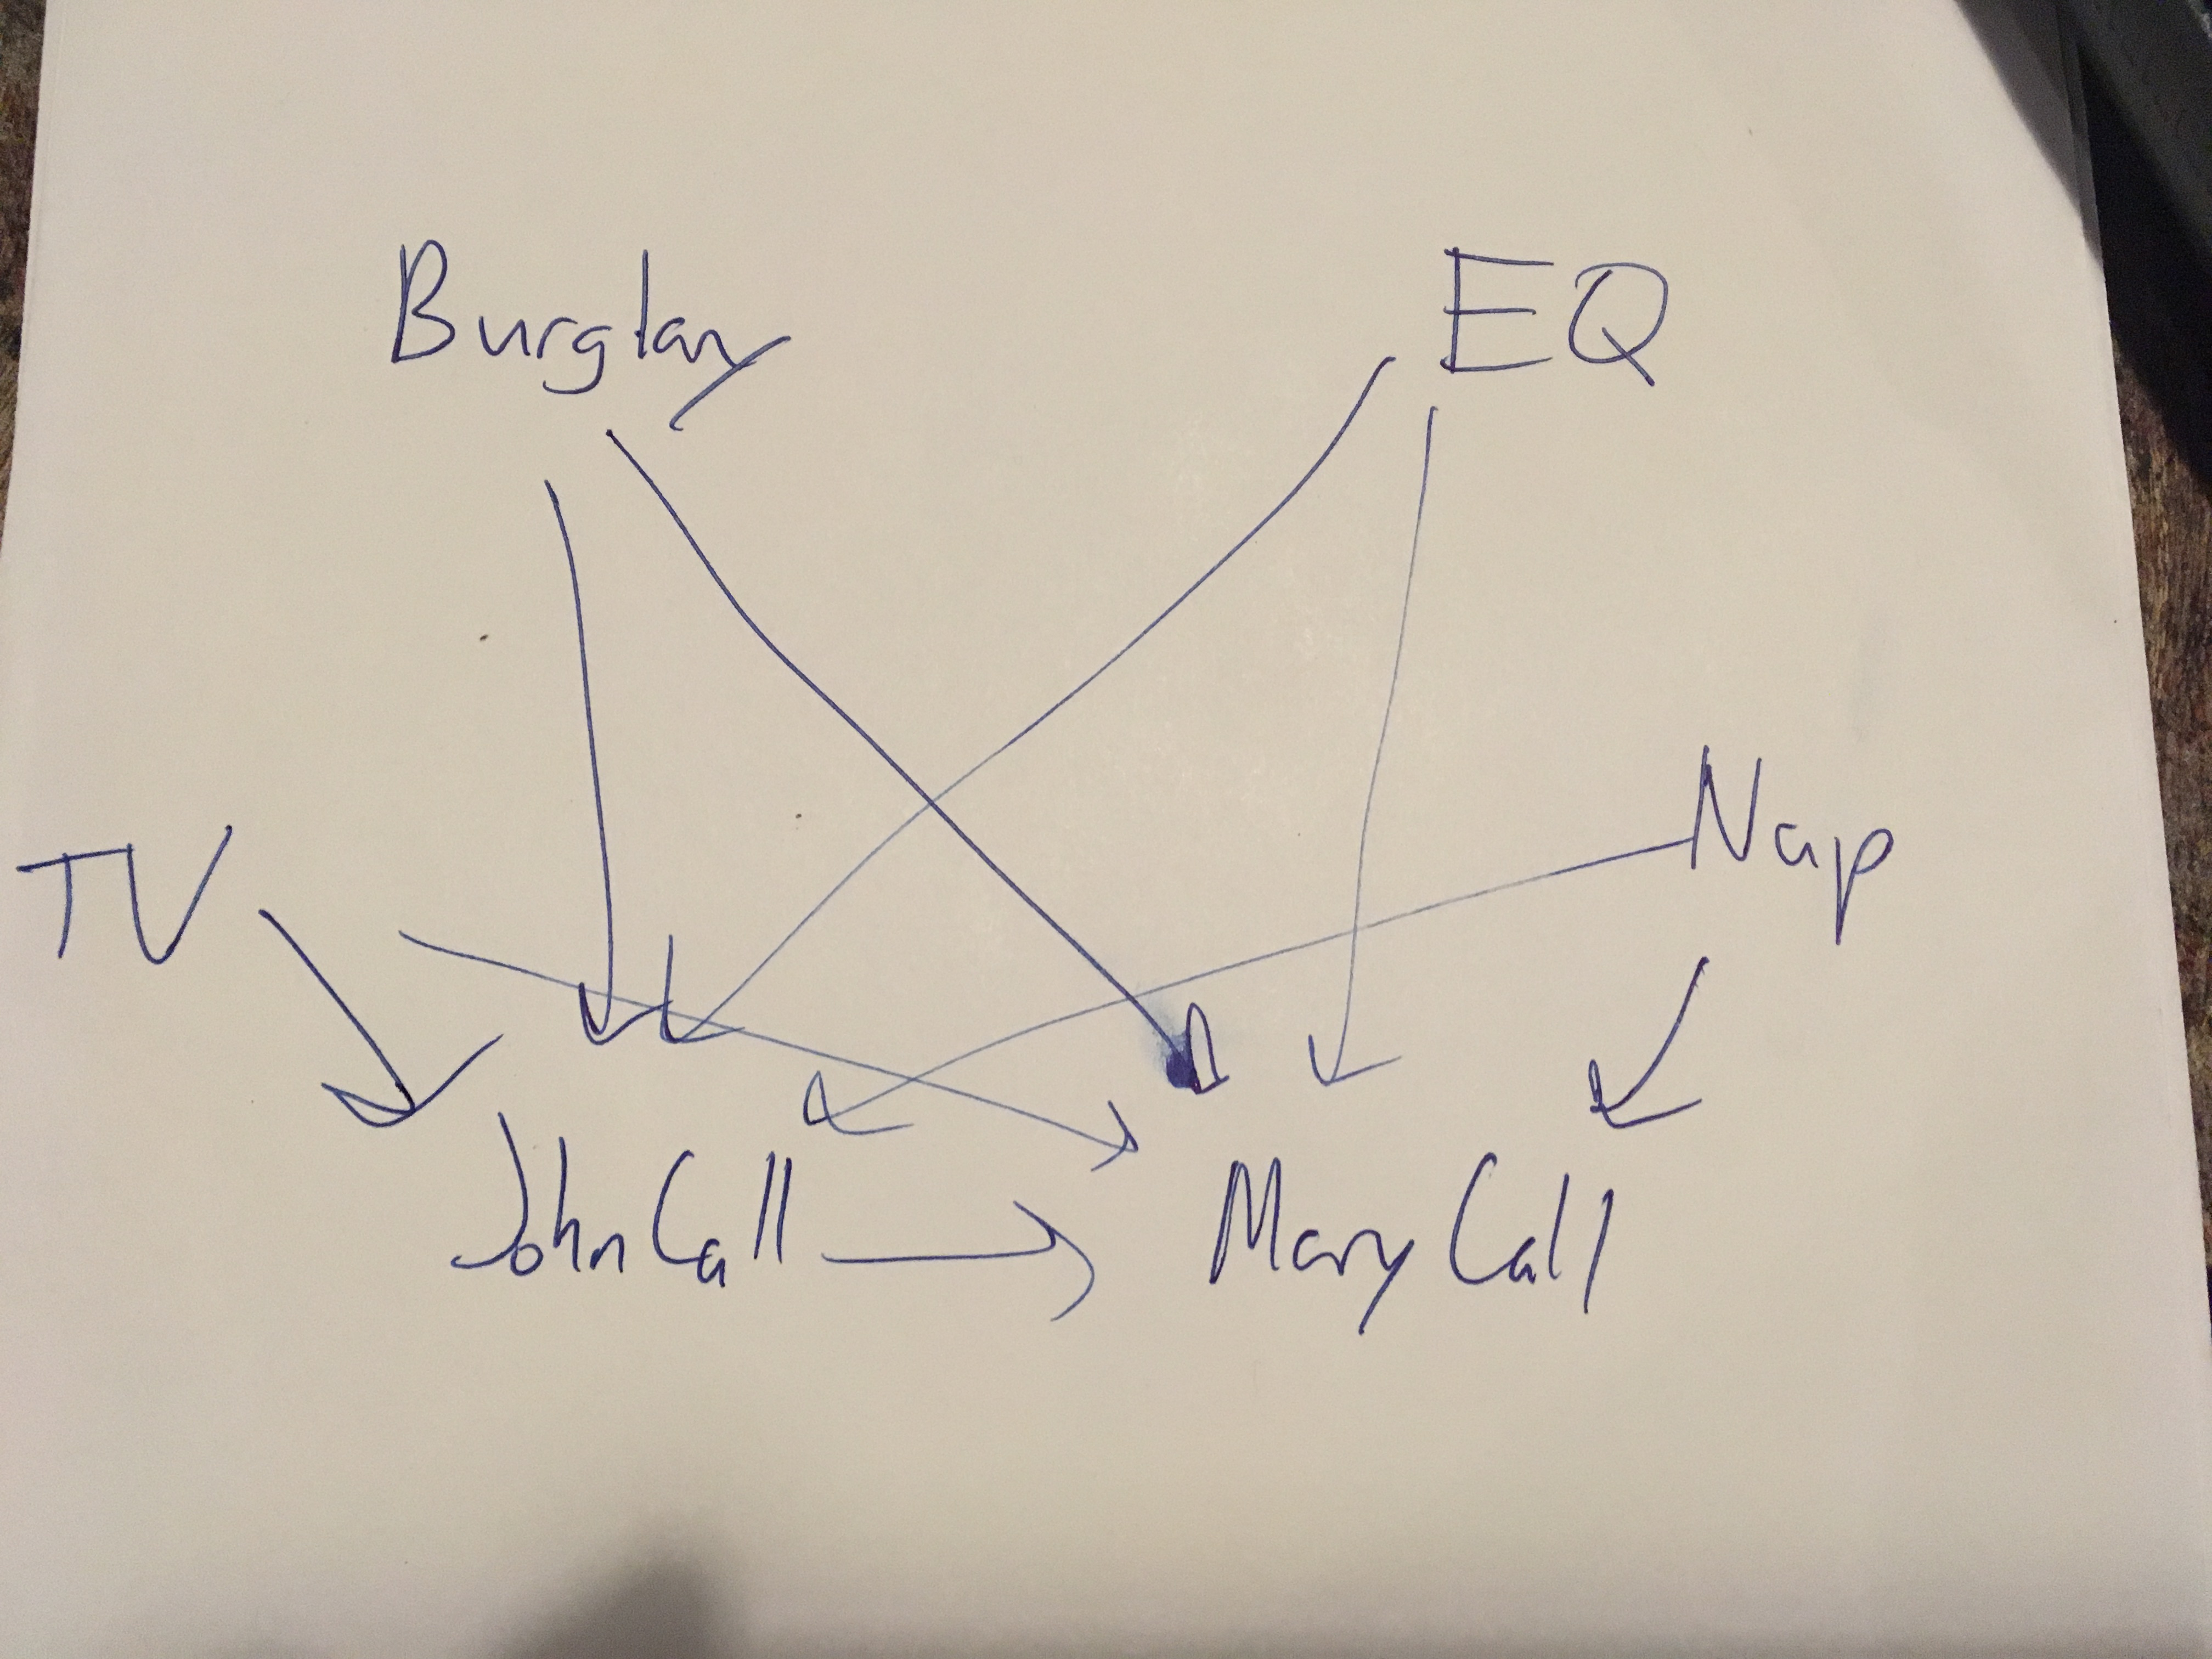 Burglary
EQ
TV
Nap
JohnCall
MaryCall